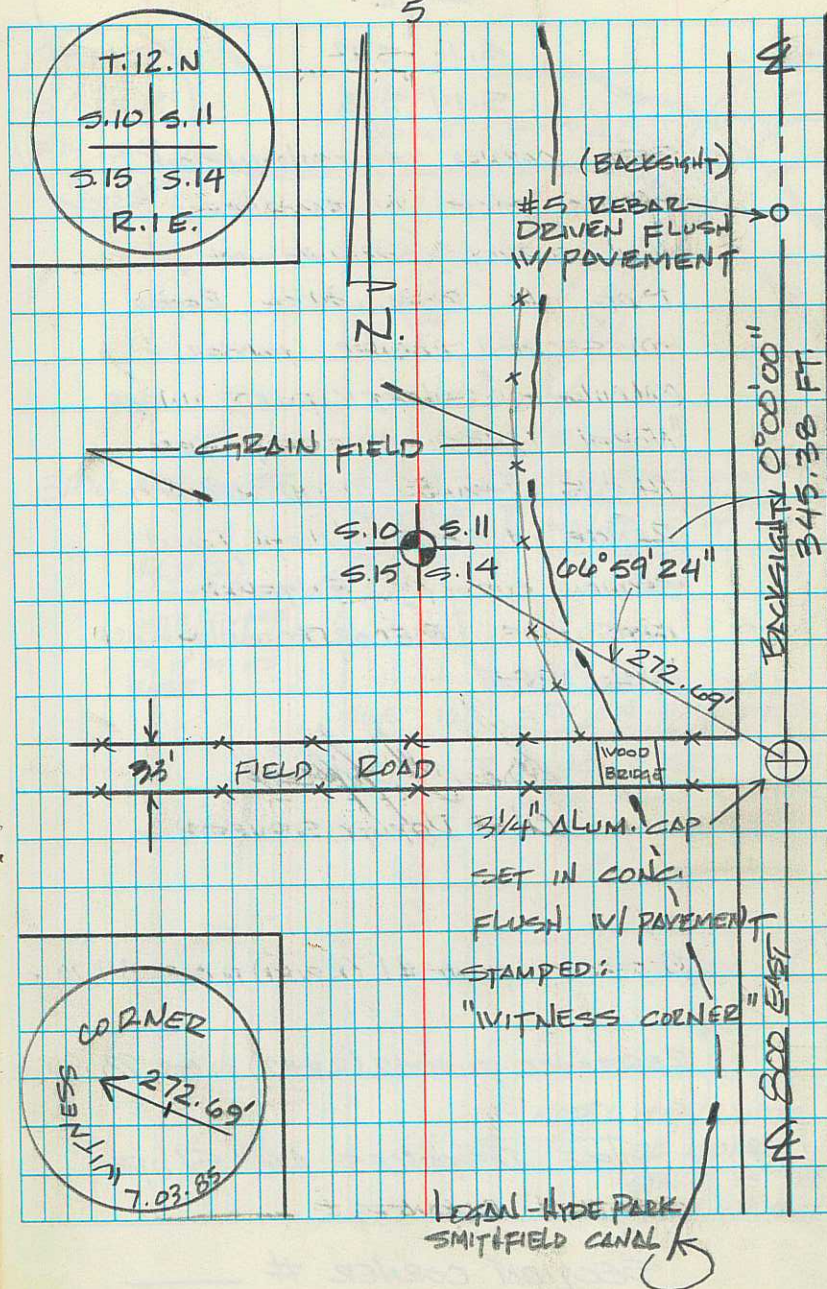 5
T.12.N
S.10 S.11
S.15 S.14
R.1E.
(BACKSIGHT)
#5 REBAR
DRIVEN FLUSH
W/ PAVEMENT
N.
GRAIN FIELD
S.10 S.11
S.15 S.14
66°59'24"
272.69'
BACKSIGHT 0°00'00"
345.38 FT.
33' FIELD ROAD
WOOD
BRIDGE
3 1/4" ALUM. CAP
SET IN CONC.
FLUSH W/ PAVEMENT
STAMPED:
"WITNESS CORNER"
800 EAST
WITNESS CORNER
272.69'
7.03.85
LOGAN-HYDE PARK
SMITHFIELD CANAL